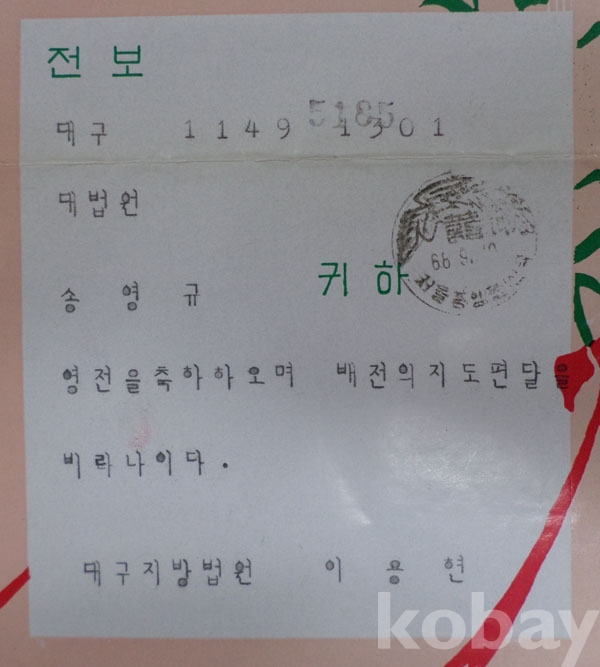 전보
5185
대구 1149 1301
대법원
66.9.
송영규 귀하
영전을축하하오며 배전의지도편달을
비라나이다.
대구지방법원 이용현
kobay